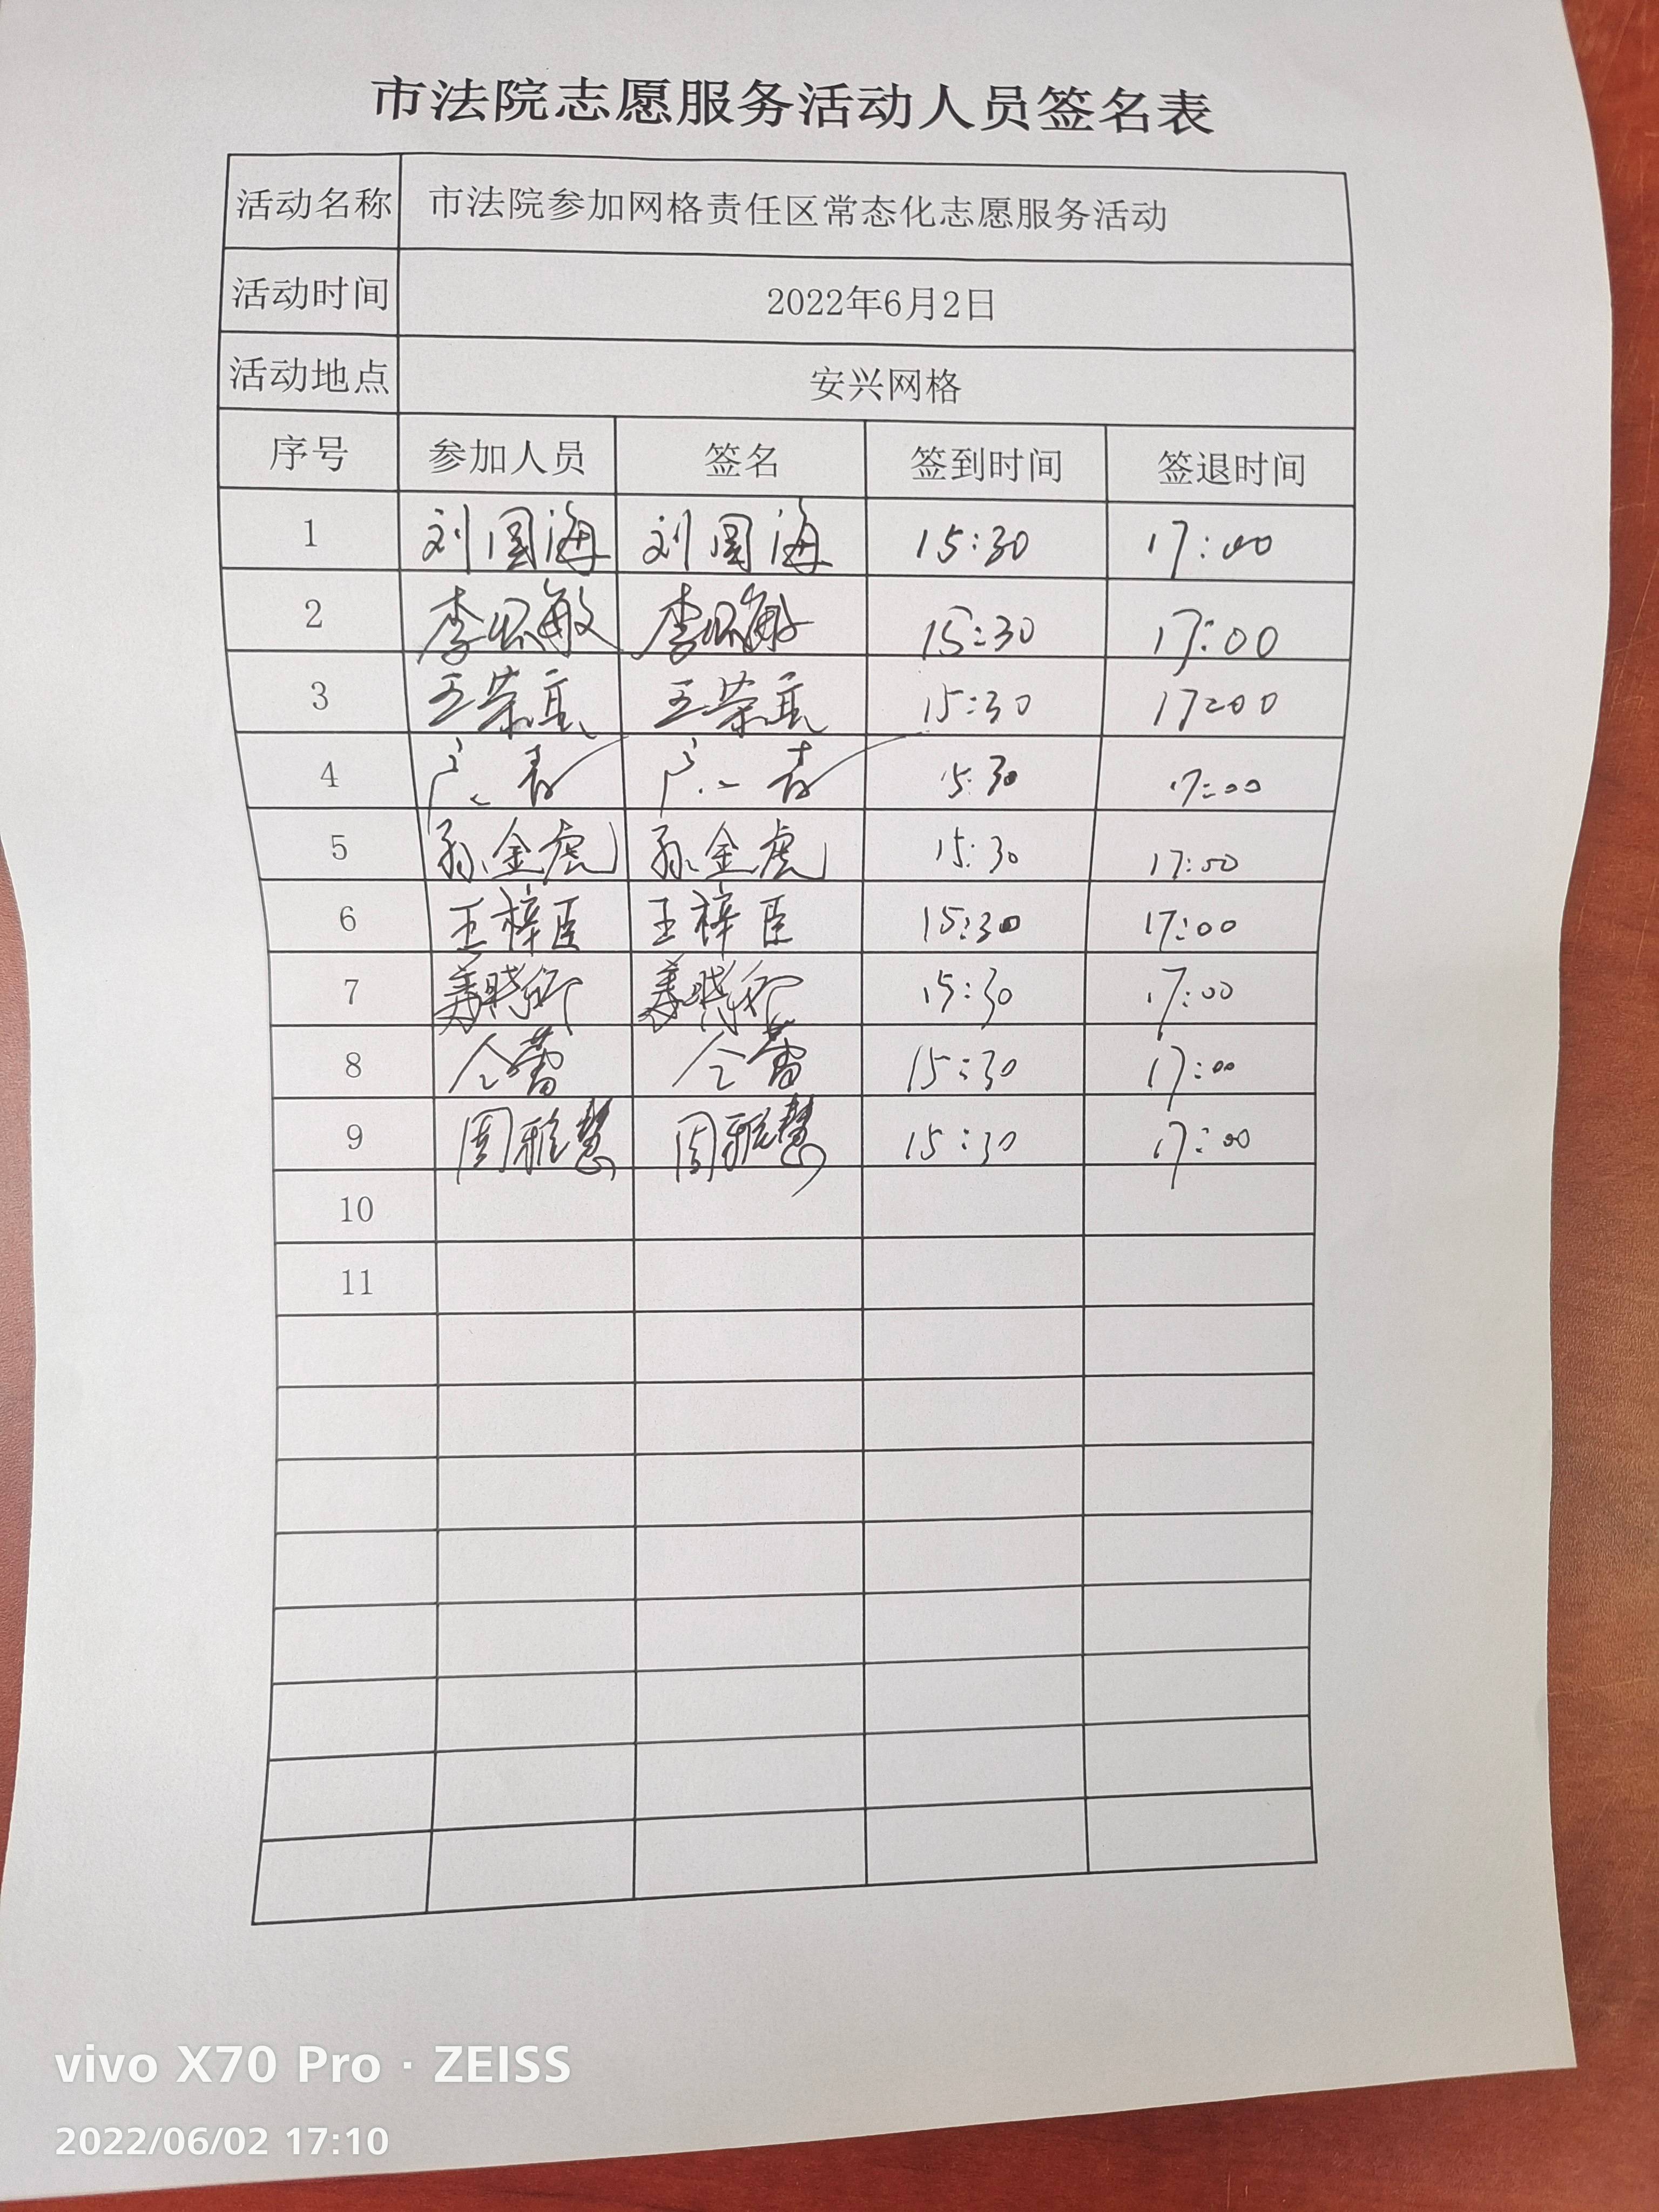 市法院志愿服务活动人员签名表
活动名称 市法院参加网格责任区常态化志愿服务活动
活动时间 2022年6月2日
活动地点 安兴网格
序号 参加人员 签名 签到时间 签退时间
1 刘国海 刘国海 15:30 17:00
2 李 敏 李 敏 15:30 17:00
3 王荣 王荣 15:30 17:00
4 15:30 17:00
5 孙金虎 孙金虎 15:30 17:00
6 王梓臣 王梓臣 15:30 17:00
7 姜晓 姜晓 15:30 17:00
8 仝蕾 仝蕾 15:30 17:00
9 周雅慧 周雅慧 15:30 17:00
10
11
vivo X70 Pro · ZEISS
2022/06/02 17:10